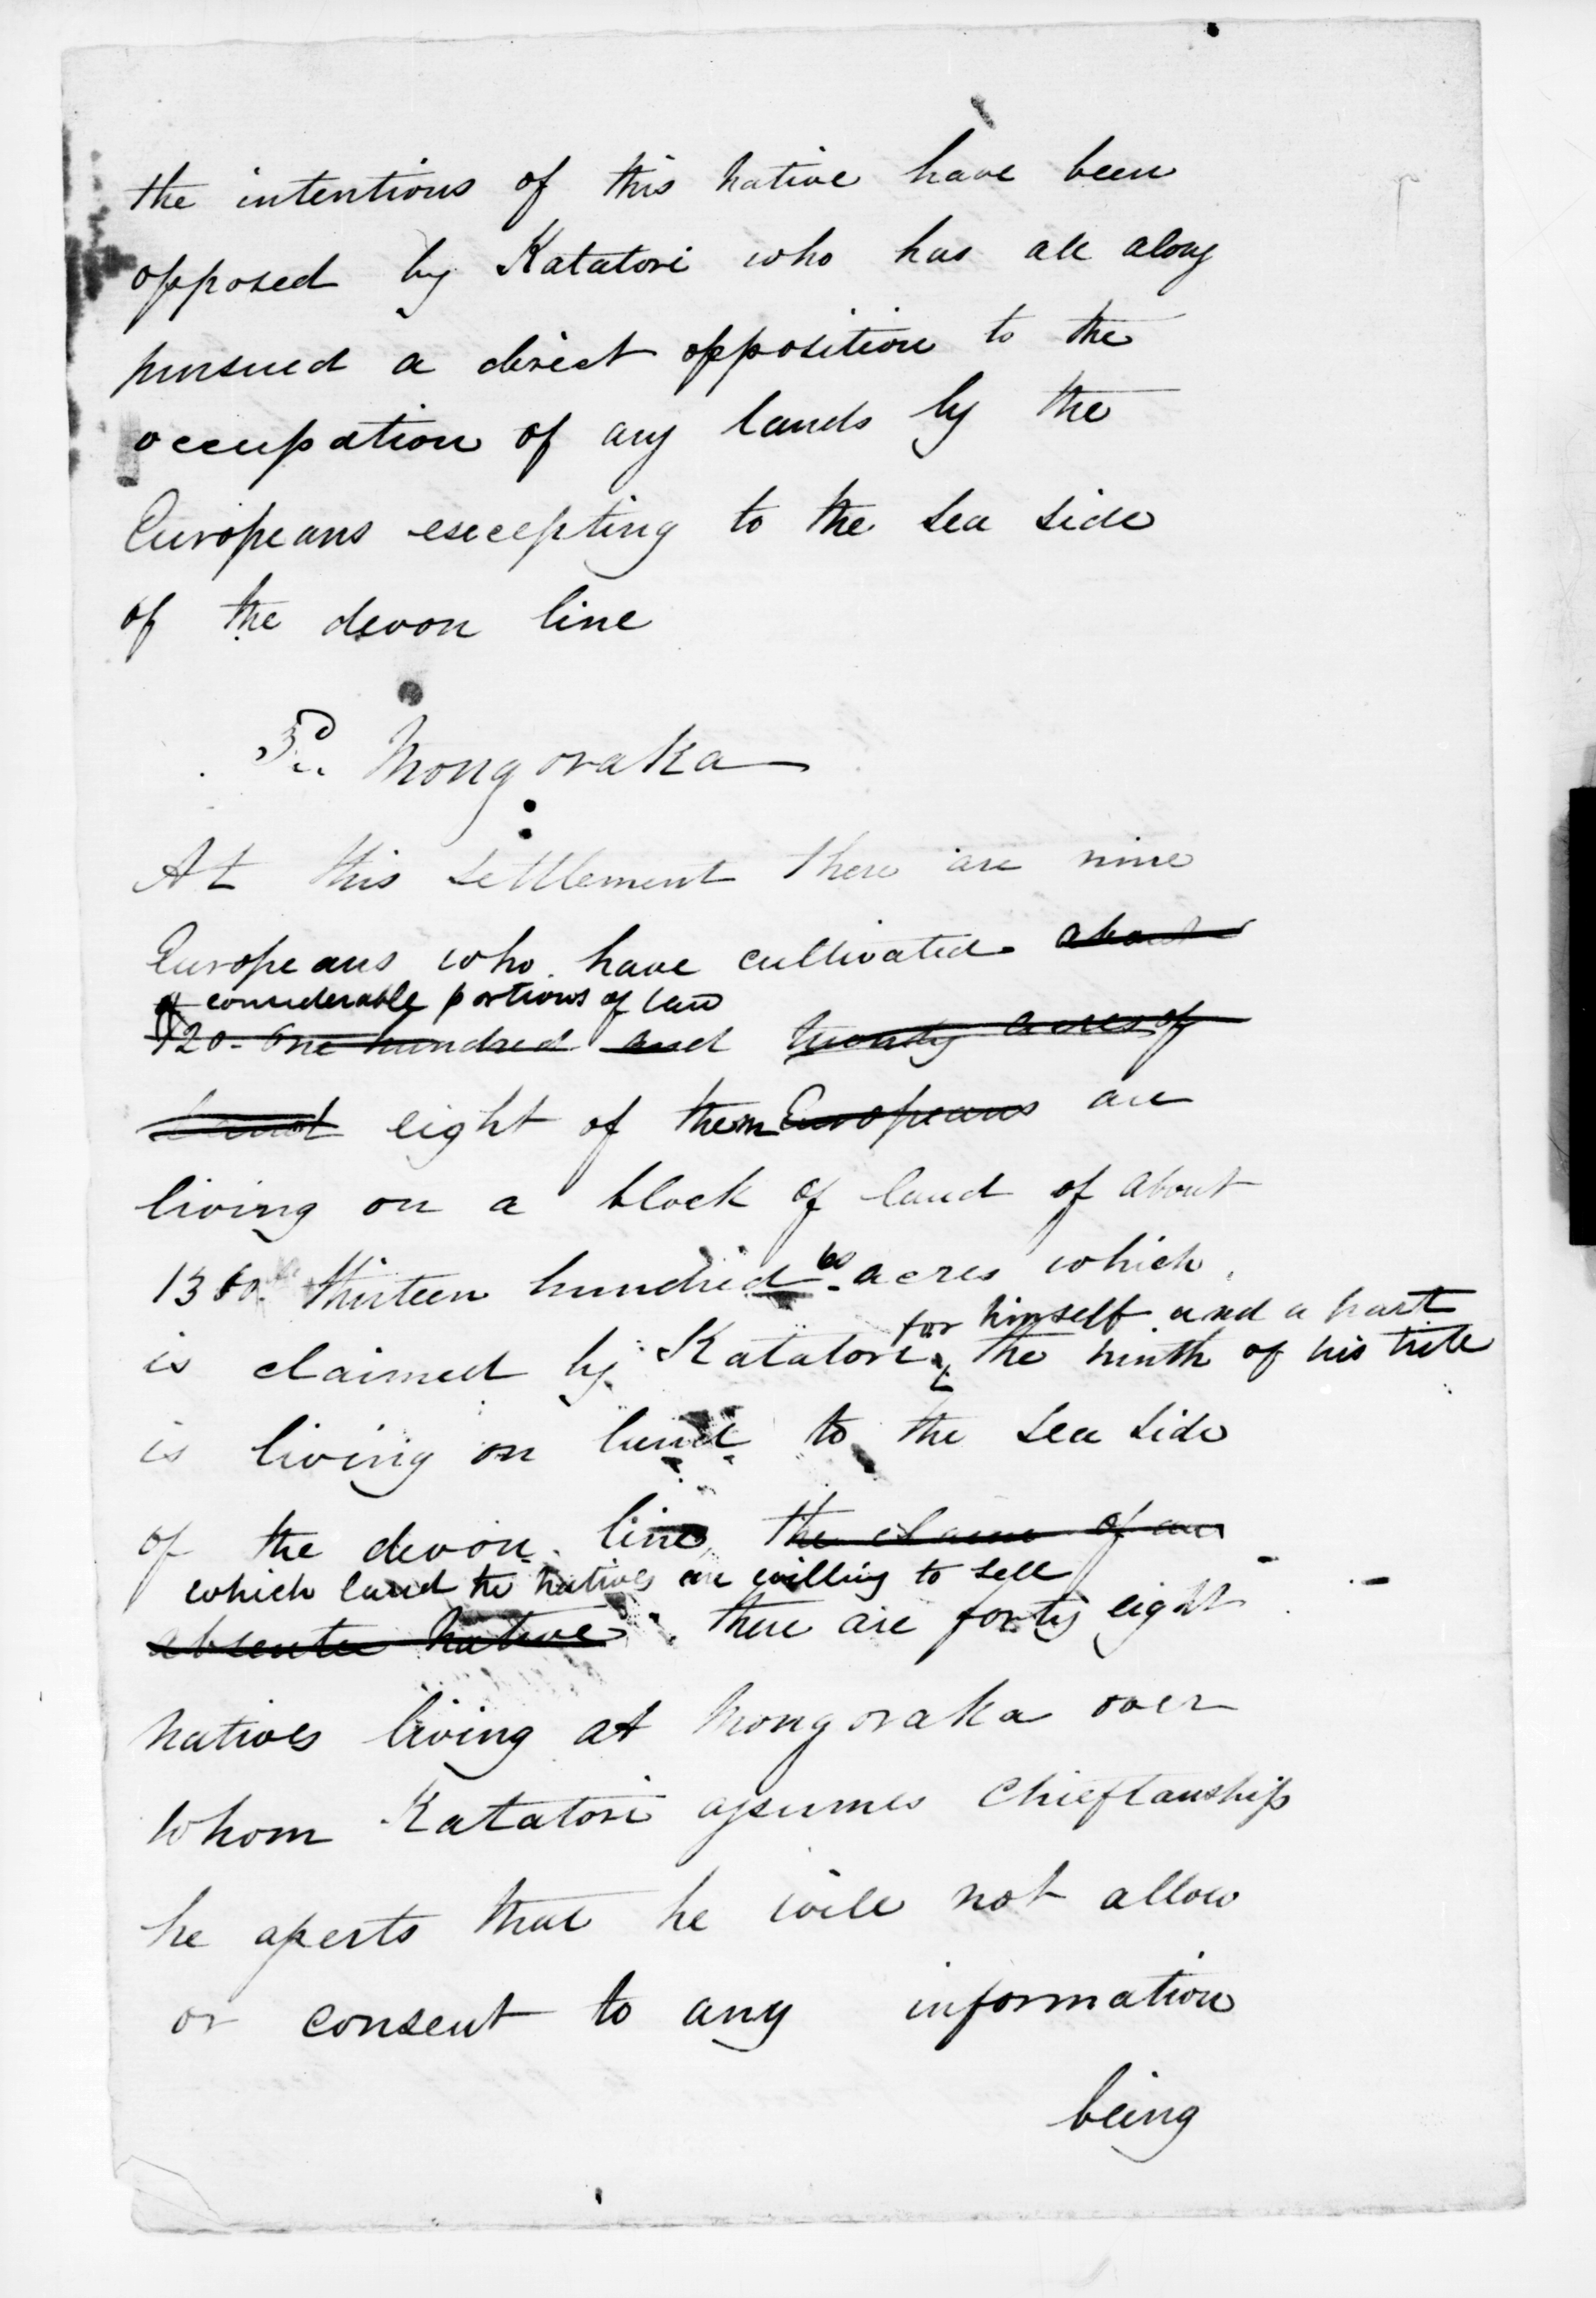 the intentions of this native have been
opposed by Katatori who has all along
pursued a direct opposition to the
occupation of any lands by the
Europeans excepting to the sea side
of the devon line
3d. Mongoraka
At this settlement there are nine
Europeans who have cultivated about
considerable portions of land
120 - one hundred and twenty acres of
land eight of them Europeans are
living on a block of land of about
1360 thirteen hundred 60 acres which
for himself and a part
is claimed by Katatori, the ninth of his tribe
is living on land to the sea side
of the devon line, the claim of an
which land the natives are willing to sell
absentee native. there are forty eight
natives living at Mongoraka over
whom Katatori assumes Chieftanship
he asserts that he will not allow
or consent to any information
being